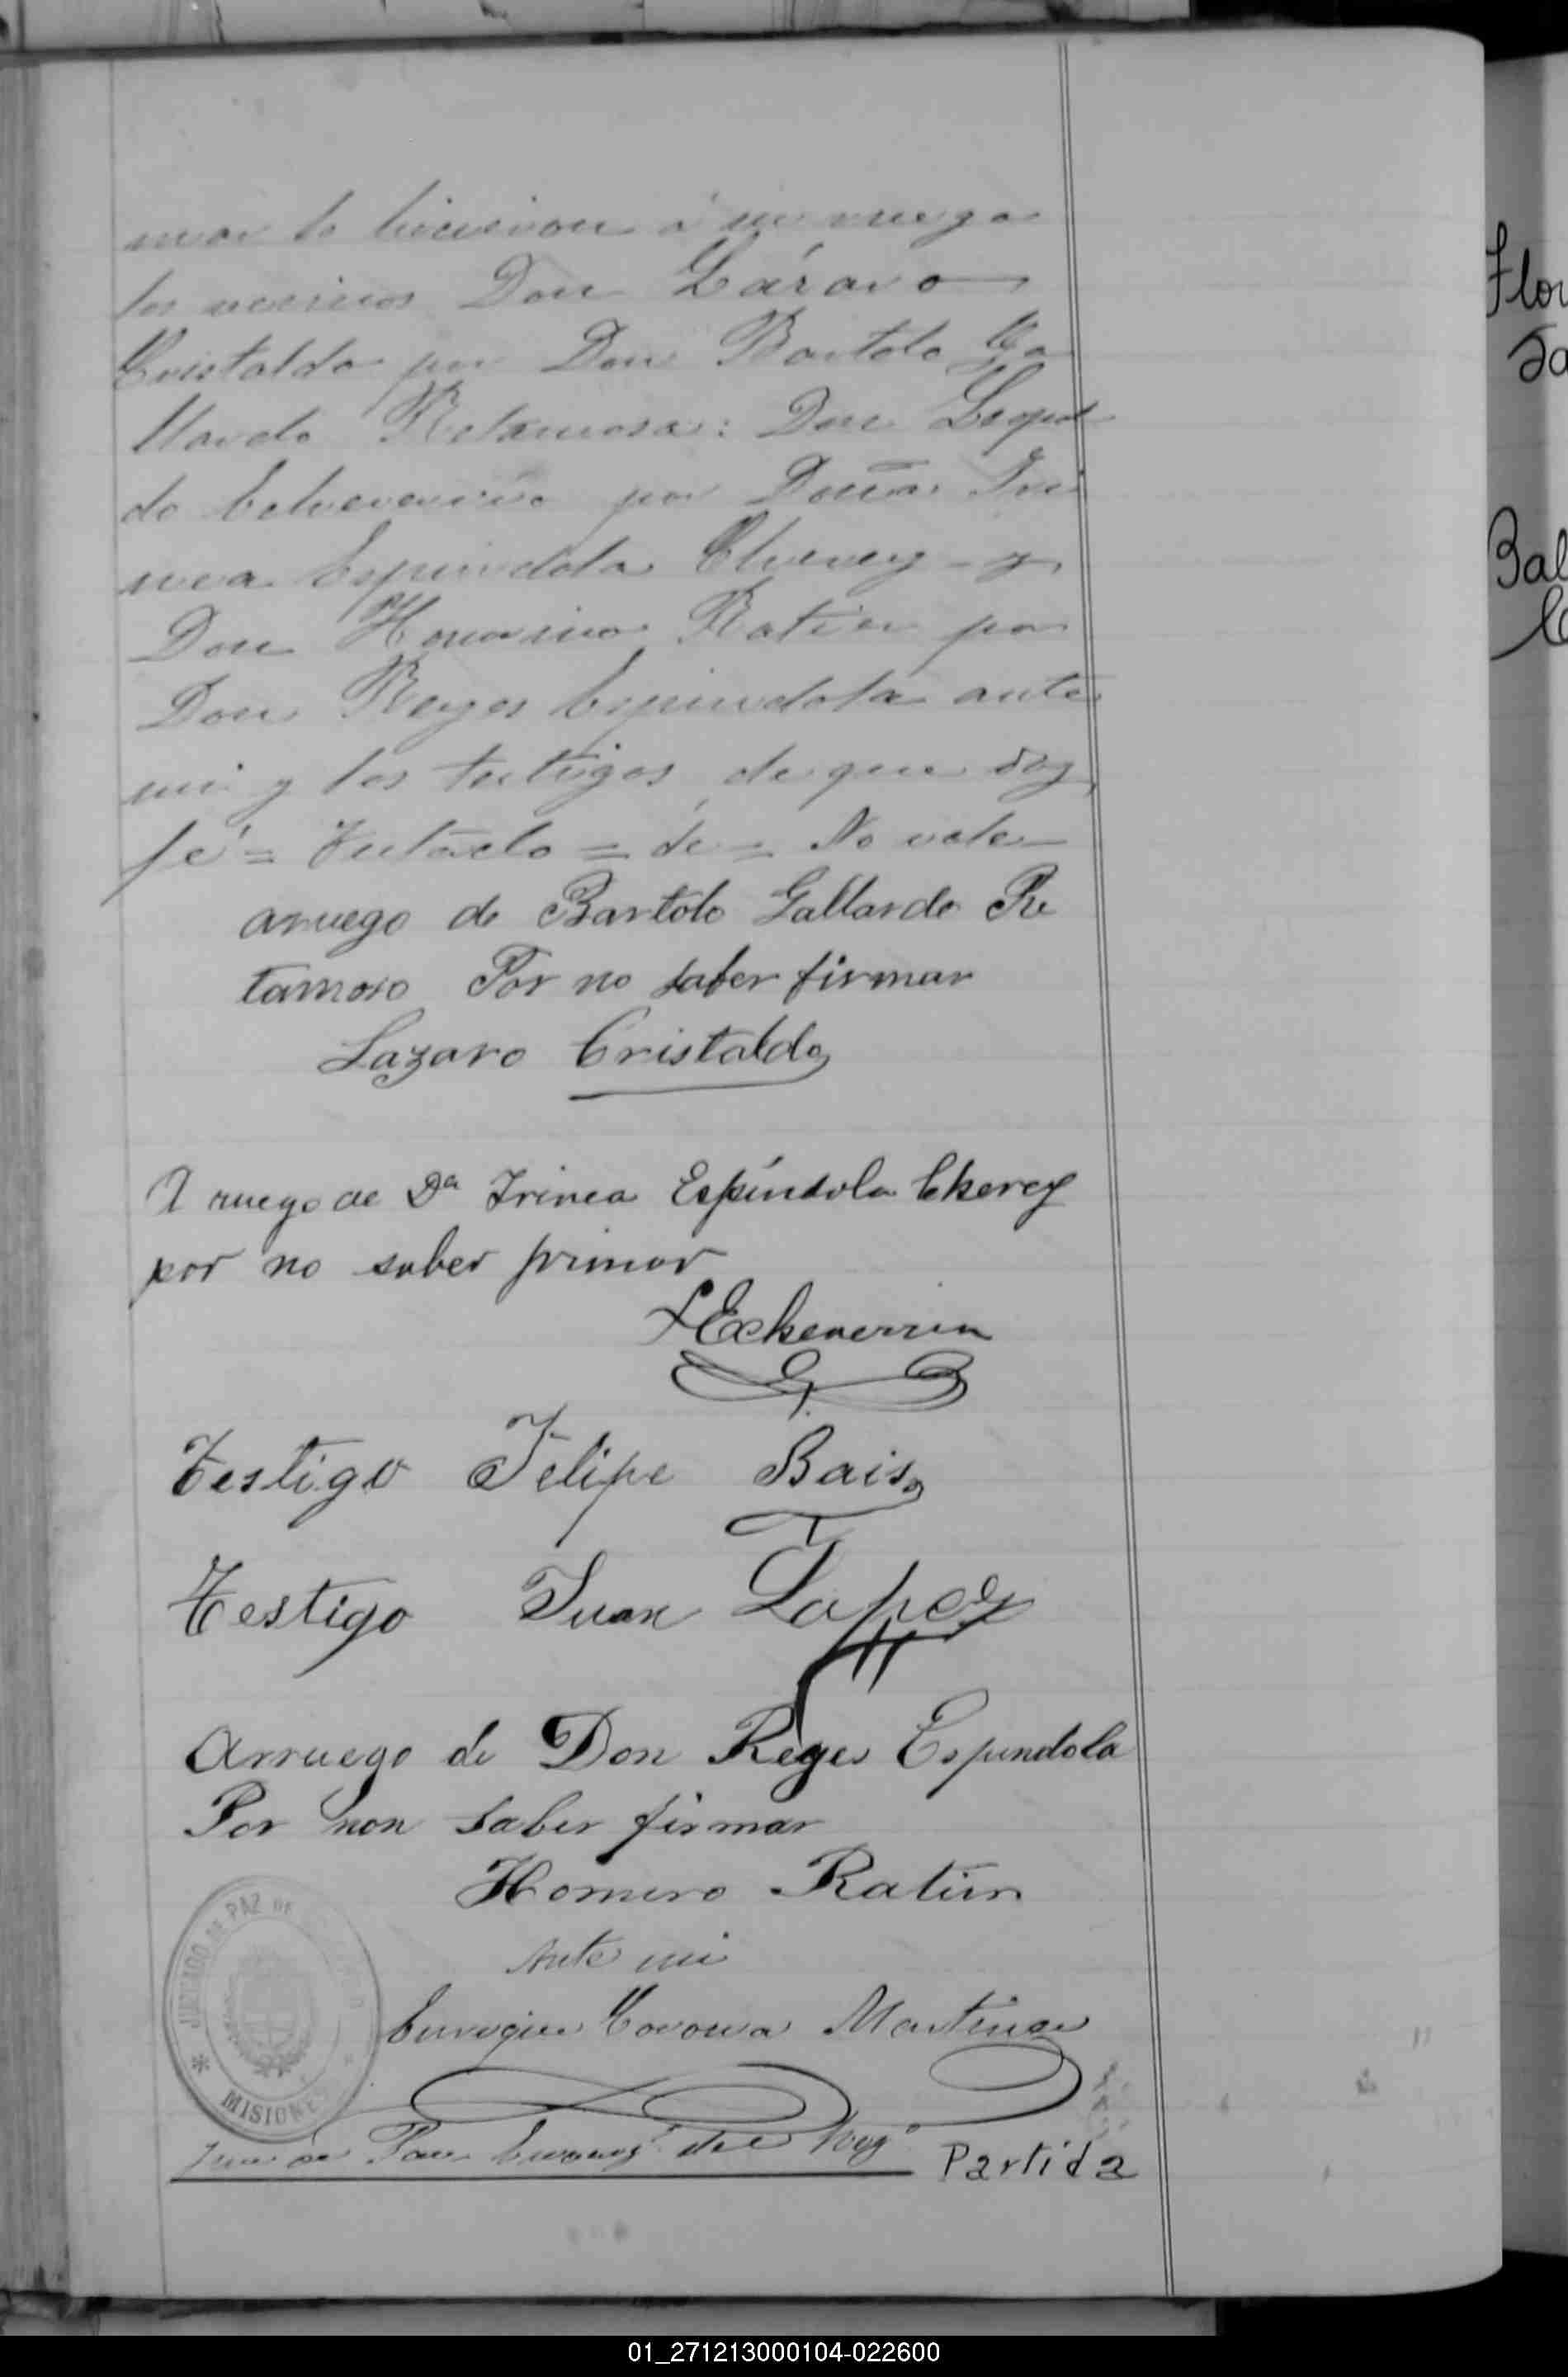 mar lo hicieron á su ruego
los vecinos Don Lázaro
Cristaldo por Don Bartolo Ga
llardo Retamosa: Don Leopol
do Echeverria por Doña Iri
nea Espindola Cherey - y
Don Homerino Ratier por
Don Reyes Espindola ante
mi y los testigos de que doy
fé = Testado = de = No vale
arruego de Bartolo Gallardo Re
tamoso Por no saber firmar
Lazaro Cristaldo
A ruego de Da Irinea Espíndola Cherey
por no saber firmar
LEcheverria
Testigo Felipe Bais
Testigo Juan Lopez
Arruego de Don Reyes Espindola
Por non saber firmar
Homero Ratier
Ante mi
Enrique Corona Martinez
Juez de Paz Encarg. del Regº
Partida
JUZGADO DE PAZ DE
MISIONES
Flor
Sa
Bal
01_271213000104-022600